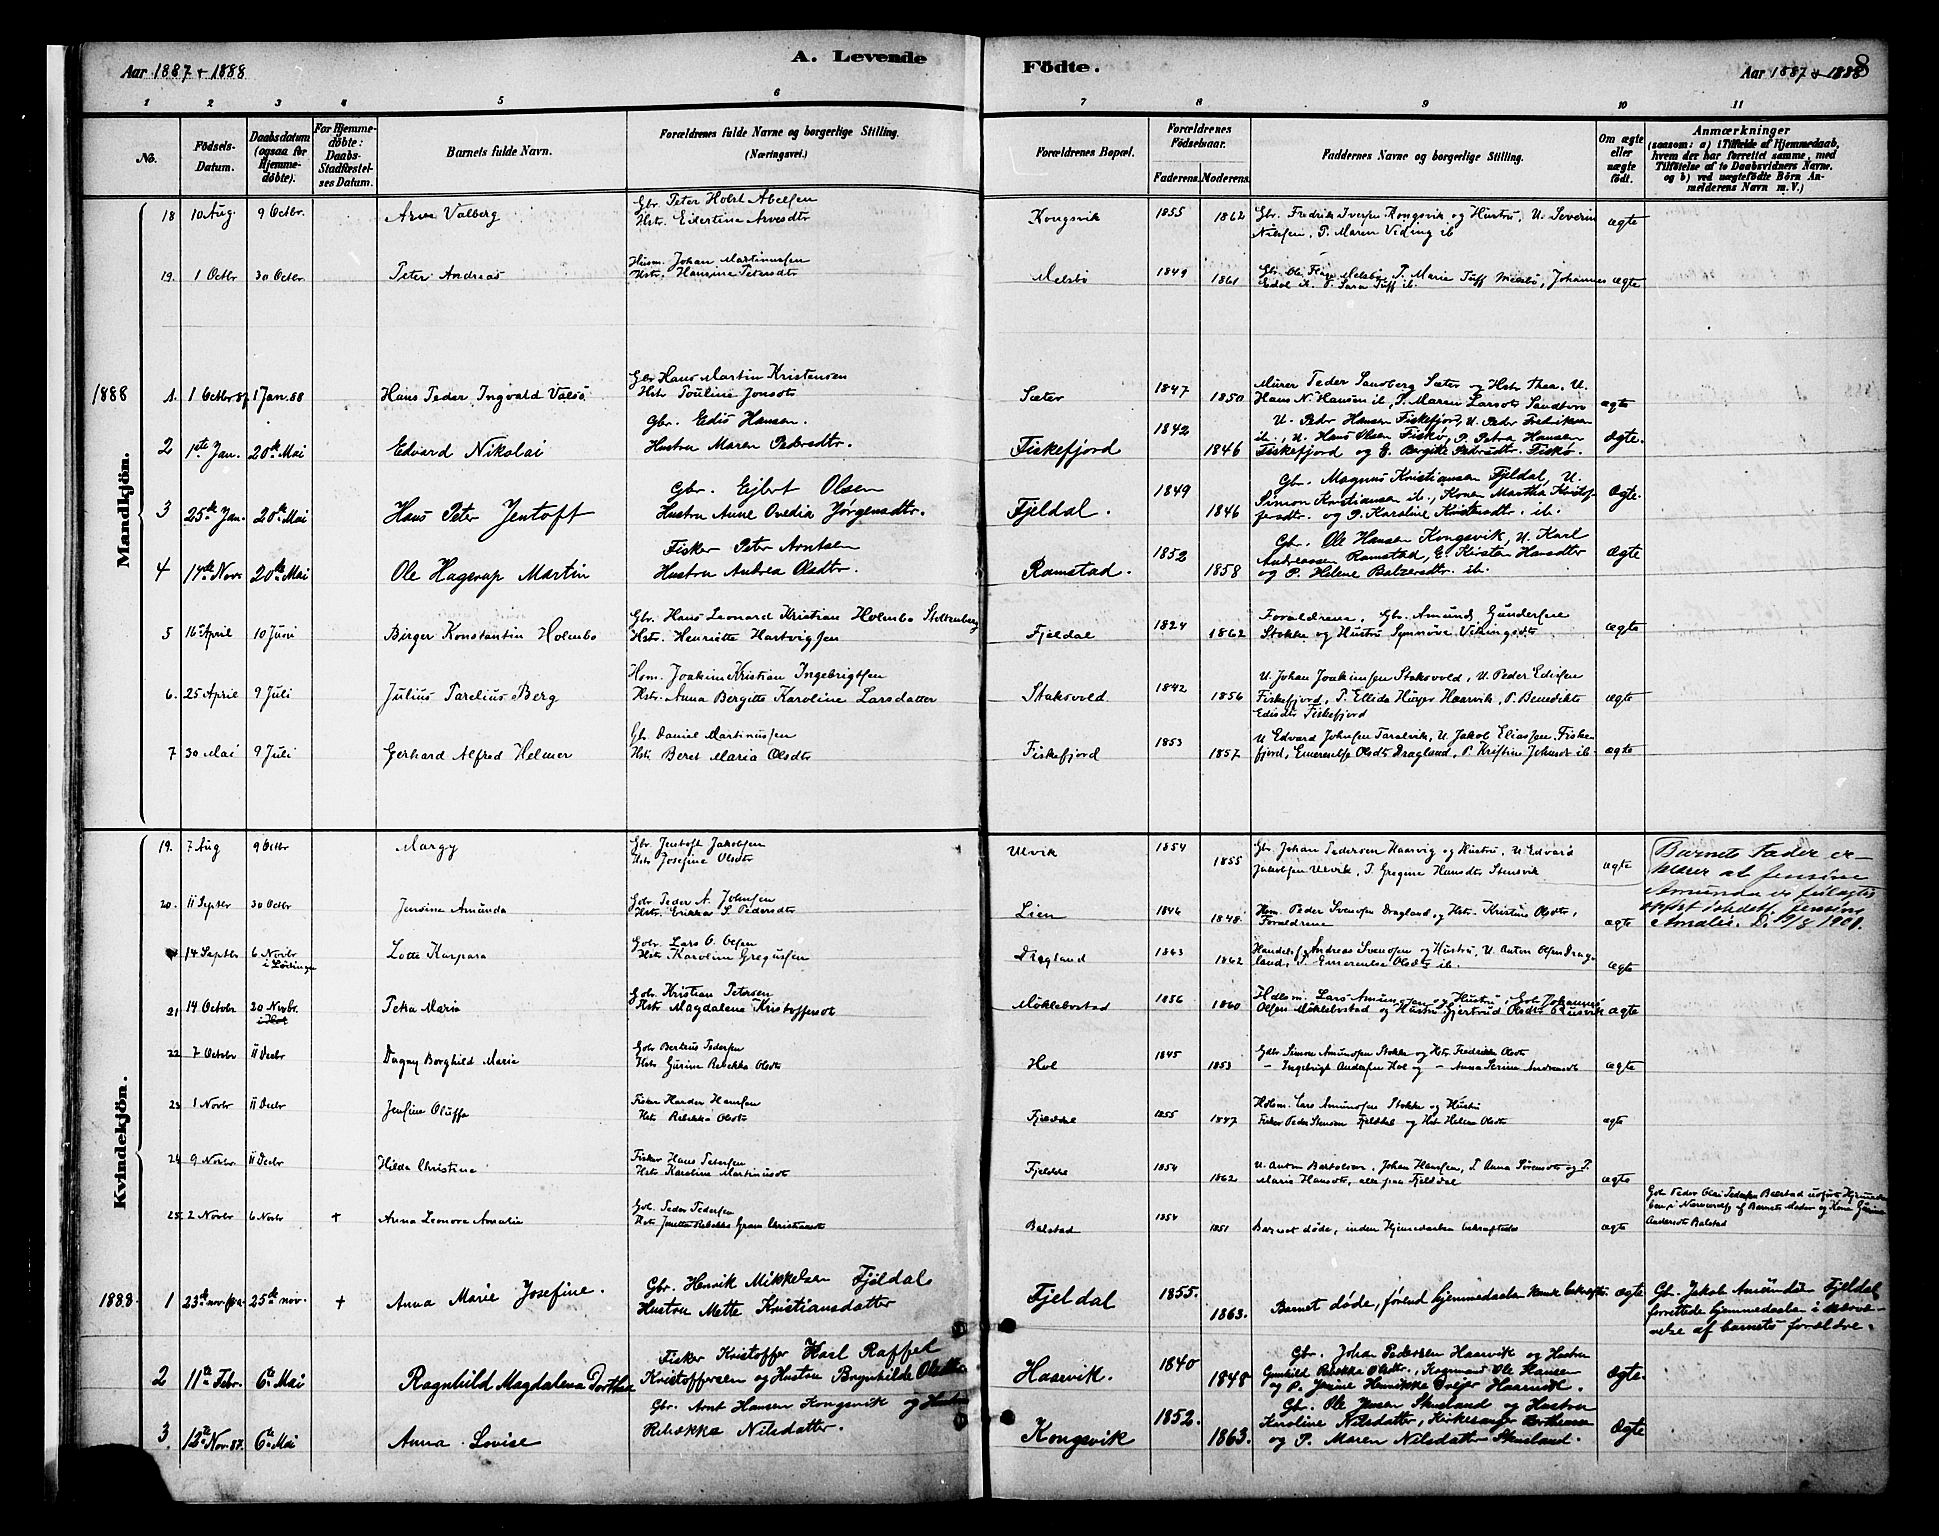 Aar 1887 + 1888
A. Levende
Födte.
Aar 1887 + 1888
8
1 2 3 4 5 6 7 8 9 10 11
No.
Födsels-Datum.
Daabsdatum (ogsaa for Hjemme-döbte).
For Hjemme-döbte: Daabs-Stadfæstel-ses Datum.
Barnets fulde Navn.
Forældrenes fulde Navne og borgerlige Stilling.
(Næringsvei.)
Forældrenes Bopæl.
Forældrenes Födselsaar.
Faderens. Moderens.
Faddernes Navne og borgerlige Stilling.
Om ægte eller uægte födt.
Anmærkninger
(saasom: a) i Tilfælde af Hjemmedaab, hvem der har forrettet samme, med Tilföielse af to Daabsvidners Navne. og b) ved uægtefödte Börn An-melderens Navn m. V.)
Mandkjön.
18 10 Aug. 9 Octbr. Arne Valberg
Gbr. Peter Holst Abelsen
Hstr. Edertine Arvesdtr
Kongsvik 1855 1862
Gbr. Fredrik Iversen Kongsvik og Hustru, U. Severin
Nilssen, P. Maren Viding ib
ægte
19. 1 Octbr 30 Octbr Peter Andreas
Husm. Johan Martinussen
Hstr. Hansine Petersdtr
Melsbö 1849 1861
ægte
1888
1. 1 Octbr 87 1 Jan. 88 Hans Peder Ingvald Valsö
Gbr Hans Martin Kristensen
Hstr Pouline Jonsdtr
Sæter 1847 1850
Murer Peder Sandberg Sæter og Hstr Thea, U.
Hans N. Hansen ib, P. Maren Larsdtr Sandtorv
ægte
2 1ste Jan. 20de Mai Edvard Nikolai
Gbr. Edis Hansen.
Hustru Maren Pedersdtr.
Fiskefjord 1842 1846
U. Peder Hansen Fiskefjord, U. Peder Fredriksen
ib., U. Hans Olsen Fiskø, P. Petra Hansen
Fiskefjord og E. Bergitte Pedersdtr. Fiskø.
Ægte.
3 25de Jan. 20de Mai Hans Peter Jentoft
Gbr. Ejlert Olsen
Hustru Anne Ovedia Jørgensdtr.
Fjeldal. 1849 1846
Gbr. Magnus Kristiansen Fjeldal, U.
Simon Kristiansen ib., Konen Martha Kristof
fersdtr. og P. Karoline Kristensdtr. ib.
Ægte.
4 17de Novr 20de Mai Ole Hagerup Martin
Fisker Peter Arntsen
Hustru Andrea Olsdtr.
Ramstad. 1852 1858
Gbr. Ole Hansen Kongsvik, U. Karl
Andreasen Ramstad, E. Kirsten Hansdtr
og P. Helene Balzersdtr. ib.
Ægte
5 16 April 10 Juni Birger Konstantin Holmbo
Gbr. Hans Leonard Kristian Holmbo Stoltenberg
Hstr. Henriette Hartvigsen
Fjeldal 1824 1862
Forældrene, Gbr. Amund Gundersen
Stokke og Hustru Synnöve Vikingsdtr
ægte
6. 25 April 9 Juli Julius Parelius Berg
Hsm. Joakim Kristian Ingebrigtsen
Hstr. Anna Bergitte Karoline Larsdatter
Staksvold 1842 1856
U. Johan Joakimsen Staksvold, U. Peder Edissen
Fiskefjord, P. Ellida Hveyer Haarvik, P. Benedikte
Edisdtr Fiskefjord
ægte
7 30 Mai 9 Juli Gerhard Alfred Helmer
Gb. Daniel Martinussen
Hstr Beret Maria Olsdtr
Fiskefjord 1853 1857
U Edvard Johnsen Taralvik, U. Jakob Eliassen Fiske-
fjord, Emerentse Olsdtr Dragland, P. Kristine Johnsdtr ib
ægte
Kvindekjön.
19. 7 Aug 9 Octbr Margy
Gbr Jentoft Jakobsen
Hstr Josefine Olsdtr
Ulvik 1854 1855
Gbr. Johan Pedersen Haarvig og Hustru, U. Edvard
Jakobsen Ulvik, P. Gregine Hansdtr Stensvik
ægte
20. 11 Septbr 30 Octbr Jensine Amunda
Gbr. Peder A. Johnsen
Hstr. Erikka S. Pedersdtr
Lien 1846 1848
Hsm. Peder Svensen Dragland og Hstr. Kristine Olsdtr,
Forældrene
ægte
Barnets Fader er-
klærer at Jensine
Amunda er feilagtig
opført istedetf. Jensine
Amalie.
14 Septbr 6 Novbr i Lödingen Lotte Kaspara
Gbr. Lars O. Olsen
Hstr Karoline Gregussen
Dragland 1863 1862
Handelsf. Andreas Svensen og Hustru, U. Anton Olsen Drag-
land, P. Emerentse Olsdtr ib.
ægte
21 14 Octobr 20 Novbr. i Hol Petra Maria
Gbr. Kristian Petersen
Hstr Magdalene Kristoffersdtr
Möklebostad 1856 1860
Hdlsm. Lars Amundsen og Hustru, Gbr Johannes
Olsen Möklebostad og Hustru Gjertrud Olsdtr
ægte
22 7 Octobr 11 Decbr Dagny Borghild Marie
Gbr Bertheus Pedersen
Hstr Gurine Rebekka Olsdtr
Hol 1845 1853
Gdbr Simon Amundsen Stokke og Hstr Fredrikke Olsdtr
– Ingebrigt Andersen Hol og – Anna Serine Andreasdtr
ægte
23 1 Novbr 11 Decbr Jensine Oluffa
Fisker Harder Hansen
Hstr Rebekka Olsdtr
Fjelddal 1855 1847
Hdlsm. Lars Amundsen Stokke og Hustru
Fisker Peder Stensen Fjelddal og Hstr Helene Olsdtr
ægte
24 9 Novbr 11 Decbr Hilda Christine
Fisker Hans Petersen
Hstr Karoline Martinusdtr
Fjelddal 1854 1862
U. Anton Bartolsen, Johan Hansen, P. Anna Sörensdtr og P.
Maria Hansdtr, alle paa Fjelddal
ægte
25 2 Novbr 6 Novbr + Anna Leonora Amalia
Gbr. Peder Pedersen
Hstr Jenetta Rebekka Gram Christiansdtr
Balstad 1854 1851
Barnet döde, inden Hjemmedaaben bekræftedes
ægte
Andersdtr Balstad
1888. 1 23de nov. 25de nov. + Anna Marie Josefine.
Gbr. Henrik Mikkelsen Fjeldal
Hustru Mette Kristiansdatter
Fjeldal 1855. 1863.
Barnet døde, førend hjemmedaaben kunde bekræftes.
ægte
Gb. Jakob Amundsen Fjeldal
forrettede hjemmedaaben i nærvæ-
relse af barnets forældre.
2 11te Febr. 6te Mai Ragnhild Magdalena Dorthea
Fisker Kristoffer Karl Raffel
Kristoffersen og Hustru Bagnhilde Olsdtr
Haarvik. 1840 1848
Gbr. Johan Pedersen Haarvik og Hustru
Gunhild Rebekka Olsdtr., Kogmand Ole Hansen
og P. Jensine Henrikke Dreyer Haarvik.
Ægte.
3. 12te Nov. 87. 6te Mai Anna Lovise
Gbr. Arnt Hansen Kongsvik og Hustru
Rebækka Nilsdatter.
Kongsvik 1852. 1863.
Gbr. Ole Jensen Skusland og Hustru
Karoline Nilsdatter, Kirkesanger Berthensen
og P. Maren Nilsdatter Skusland.
Ægte